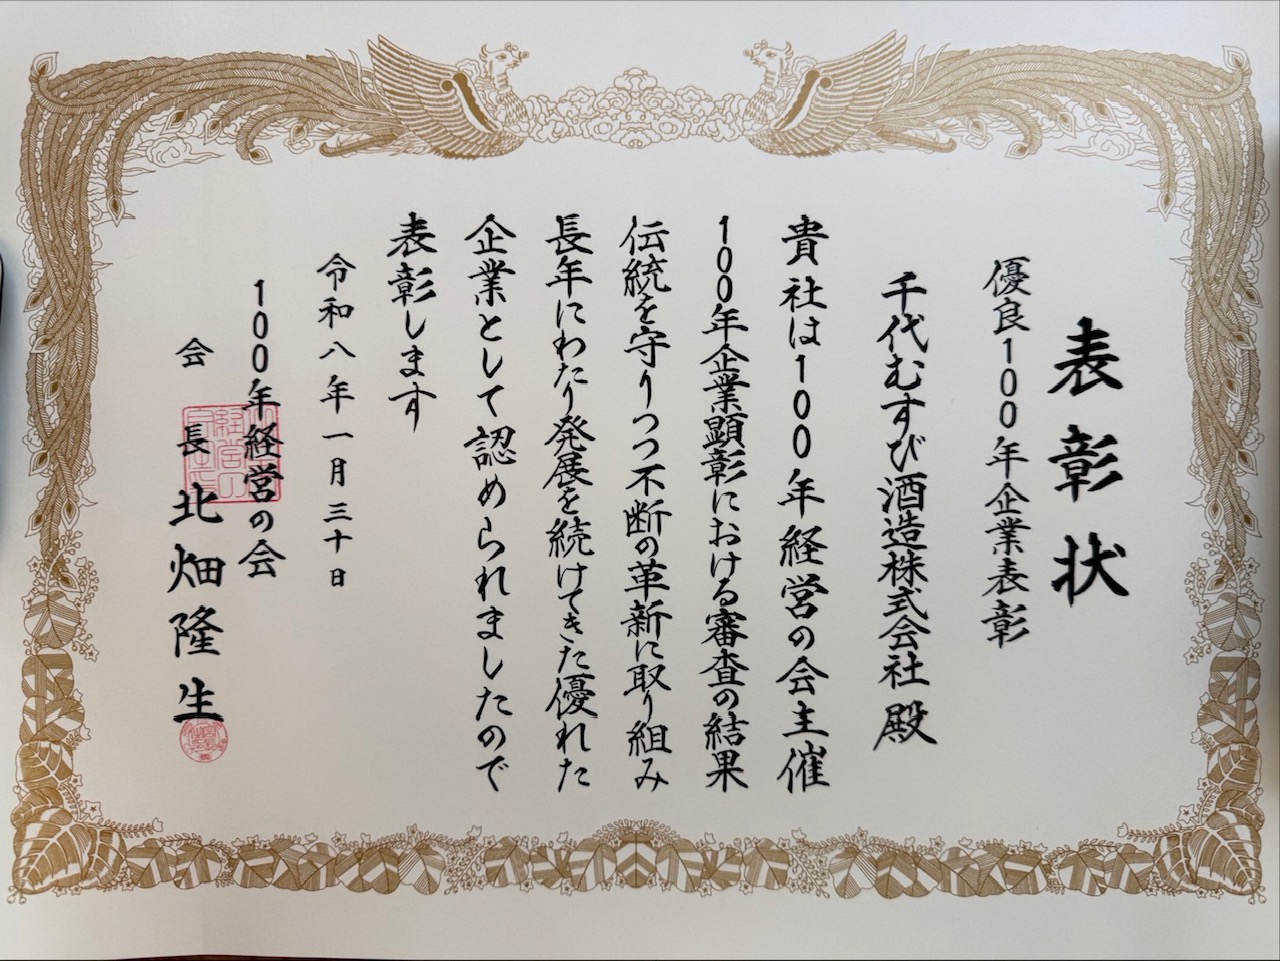 表彰状
優良100年企業表彰
千代むすび酒造株式会社 殿
貴社は100年経営の会主催
100年企業顕彰における審査の結果
伝統を守りつつ不断の革新に取り組み
長年にわたり発展を続けてきた優れた
企業として認められましたので
表彰します
令和八年一月三十日
100年経営の会
会長 北畑隆生